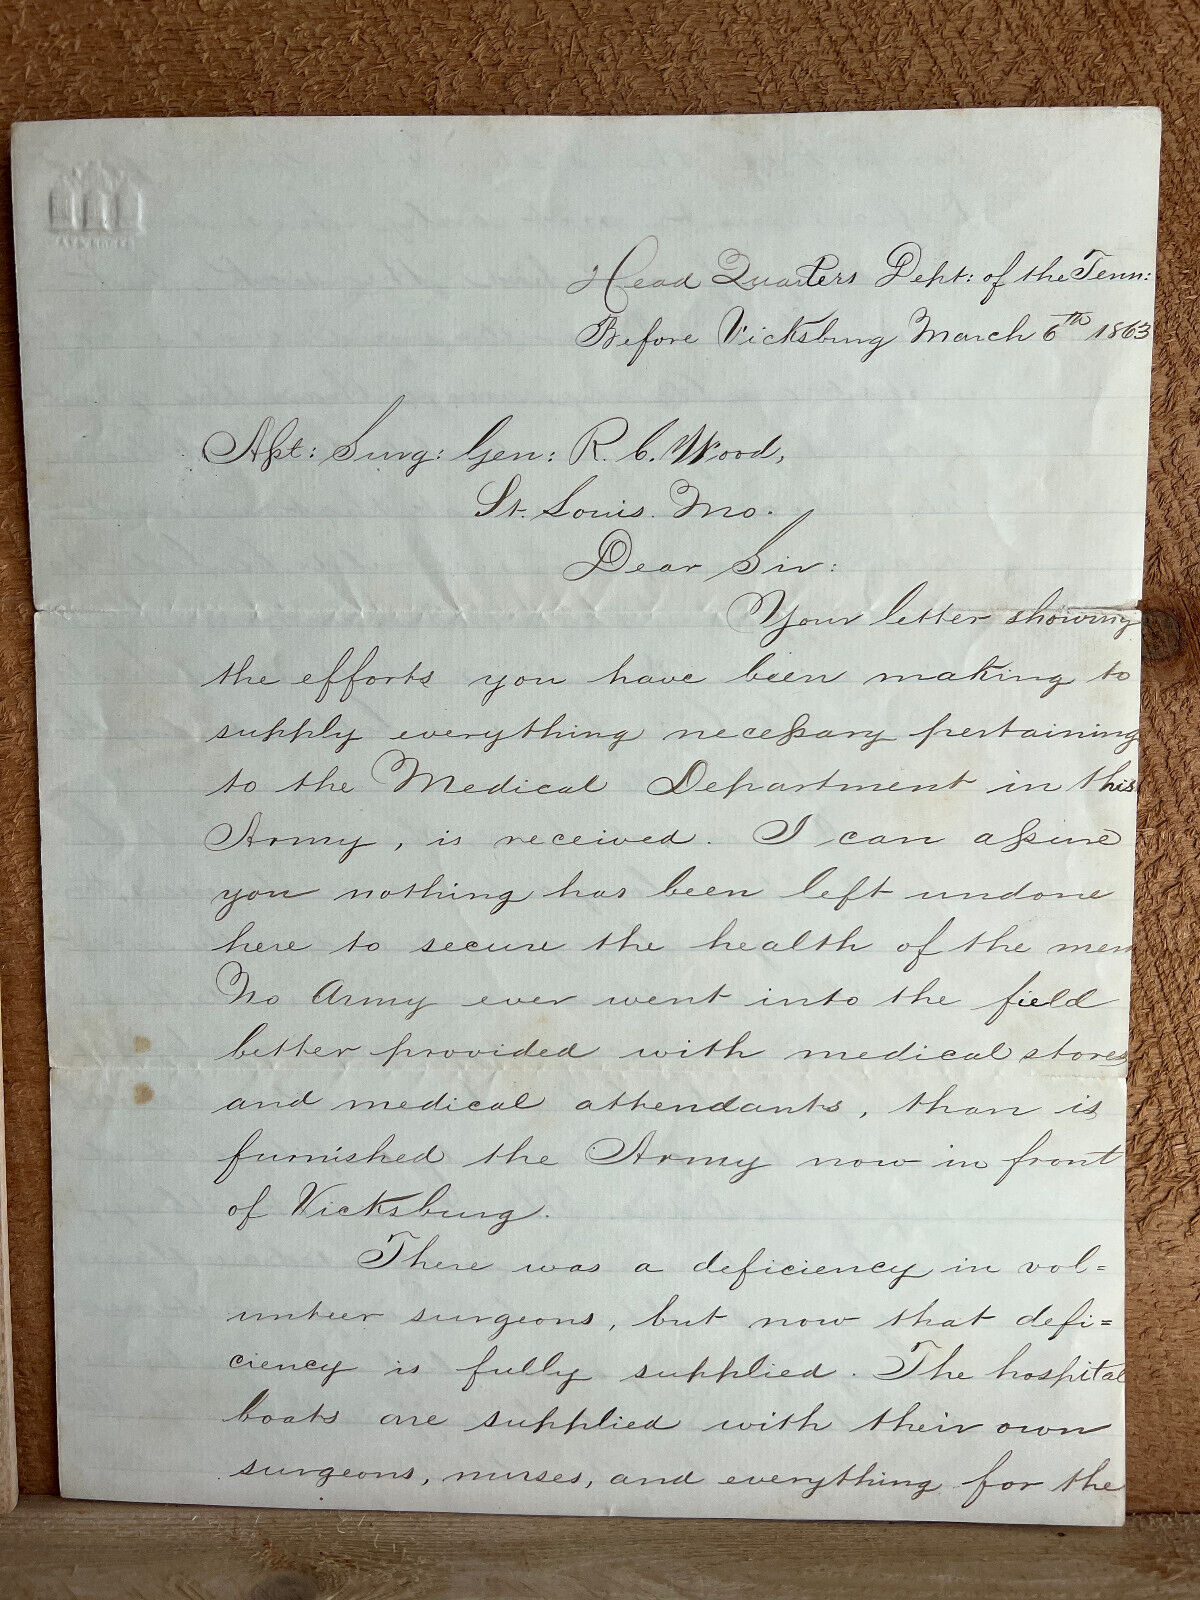 Head Quarters Dept: of the Tenn:
Before Vicksburg March 6th 1863
Asst: Surg: Gen: R. C. Wood,
St. Louis. Mo.
Dear Sir:
Your letter showing
the efforts you have been making to
supply everything necessary pertaining
to the Medical Department in this
Army, is received. I can assure
you nothing has been left undone
here to secure the health of the men
No Army ever went into the field
better provided with medical stores
and medical attendants, than is
furnished the Army now in front
of Vicksburg.
There was a deficiency in vol=
unteer surgeons, but now that defi=
ciency is fully supplied. The hospital
boats are supplied with their own
surgeons, nurses, and everything for the